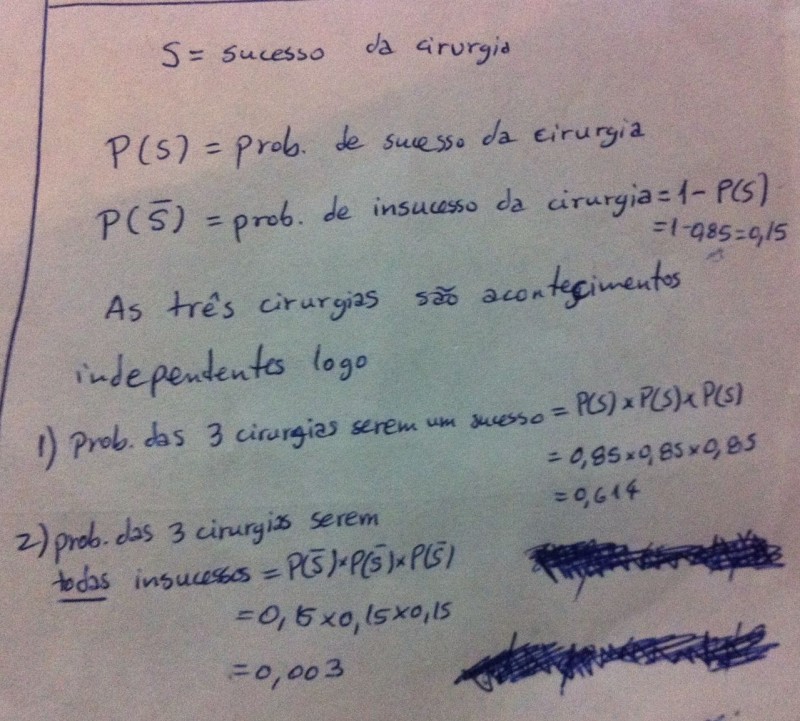 S = sucesso da cirurgia
P(S) = prob. de sucesso da cirurgia
P(S̄) = prob. de insucesso da cirurgia = 1 - P(S)
= 1 - 0,85 = 0,15
As três cirurgias são acontecimentos
independentes logo
1) Prob. das 3 cirurgias serem um sucesso = P(S) × P(S) × P(S)
= 0,85 × 0,85 × 0,85
= 0,614
2) prob. das 3 cirurgias serem
todas insucessos = P(S̄) × P(S̄) × P(S̄)
= 0,15 × 0,15 × 0,15
= 0,003